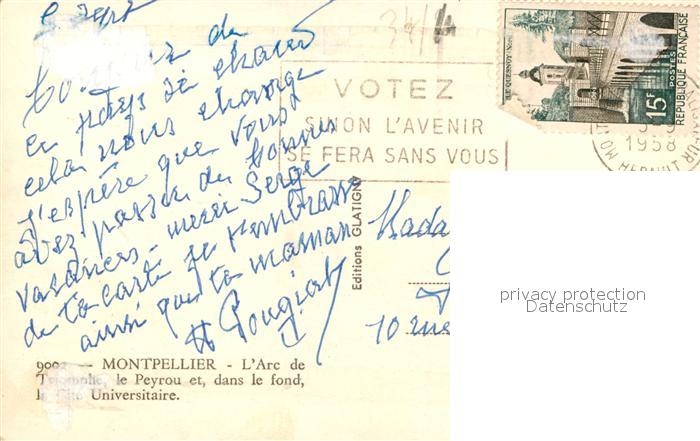 Sept
34/4
Bonjour de
ce pays de
cela nous change
J'espère que vous
avez passé de bonnes
vacances - merci Serge
de ta carte je t'embrasse
ainsi que ta maman
VOTEZ
SINON L'AVENIR
SE FERA SANS VOUS
LE QUESNOY (Nord)
15F
POSTES
REPUBLIQUE FRANÇAISE
1958
HERAULT
Editions GLATIGNY
Mada
10 rue
privacy protection
Datenschutz
MONTPELLIER - L'Arc de
Triomphe, le Peyrou et, dans le fond,
la Cité Universitaire.